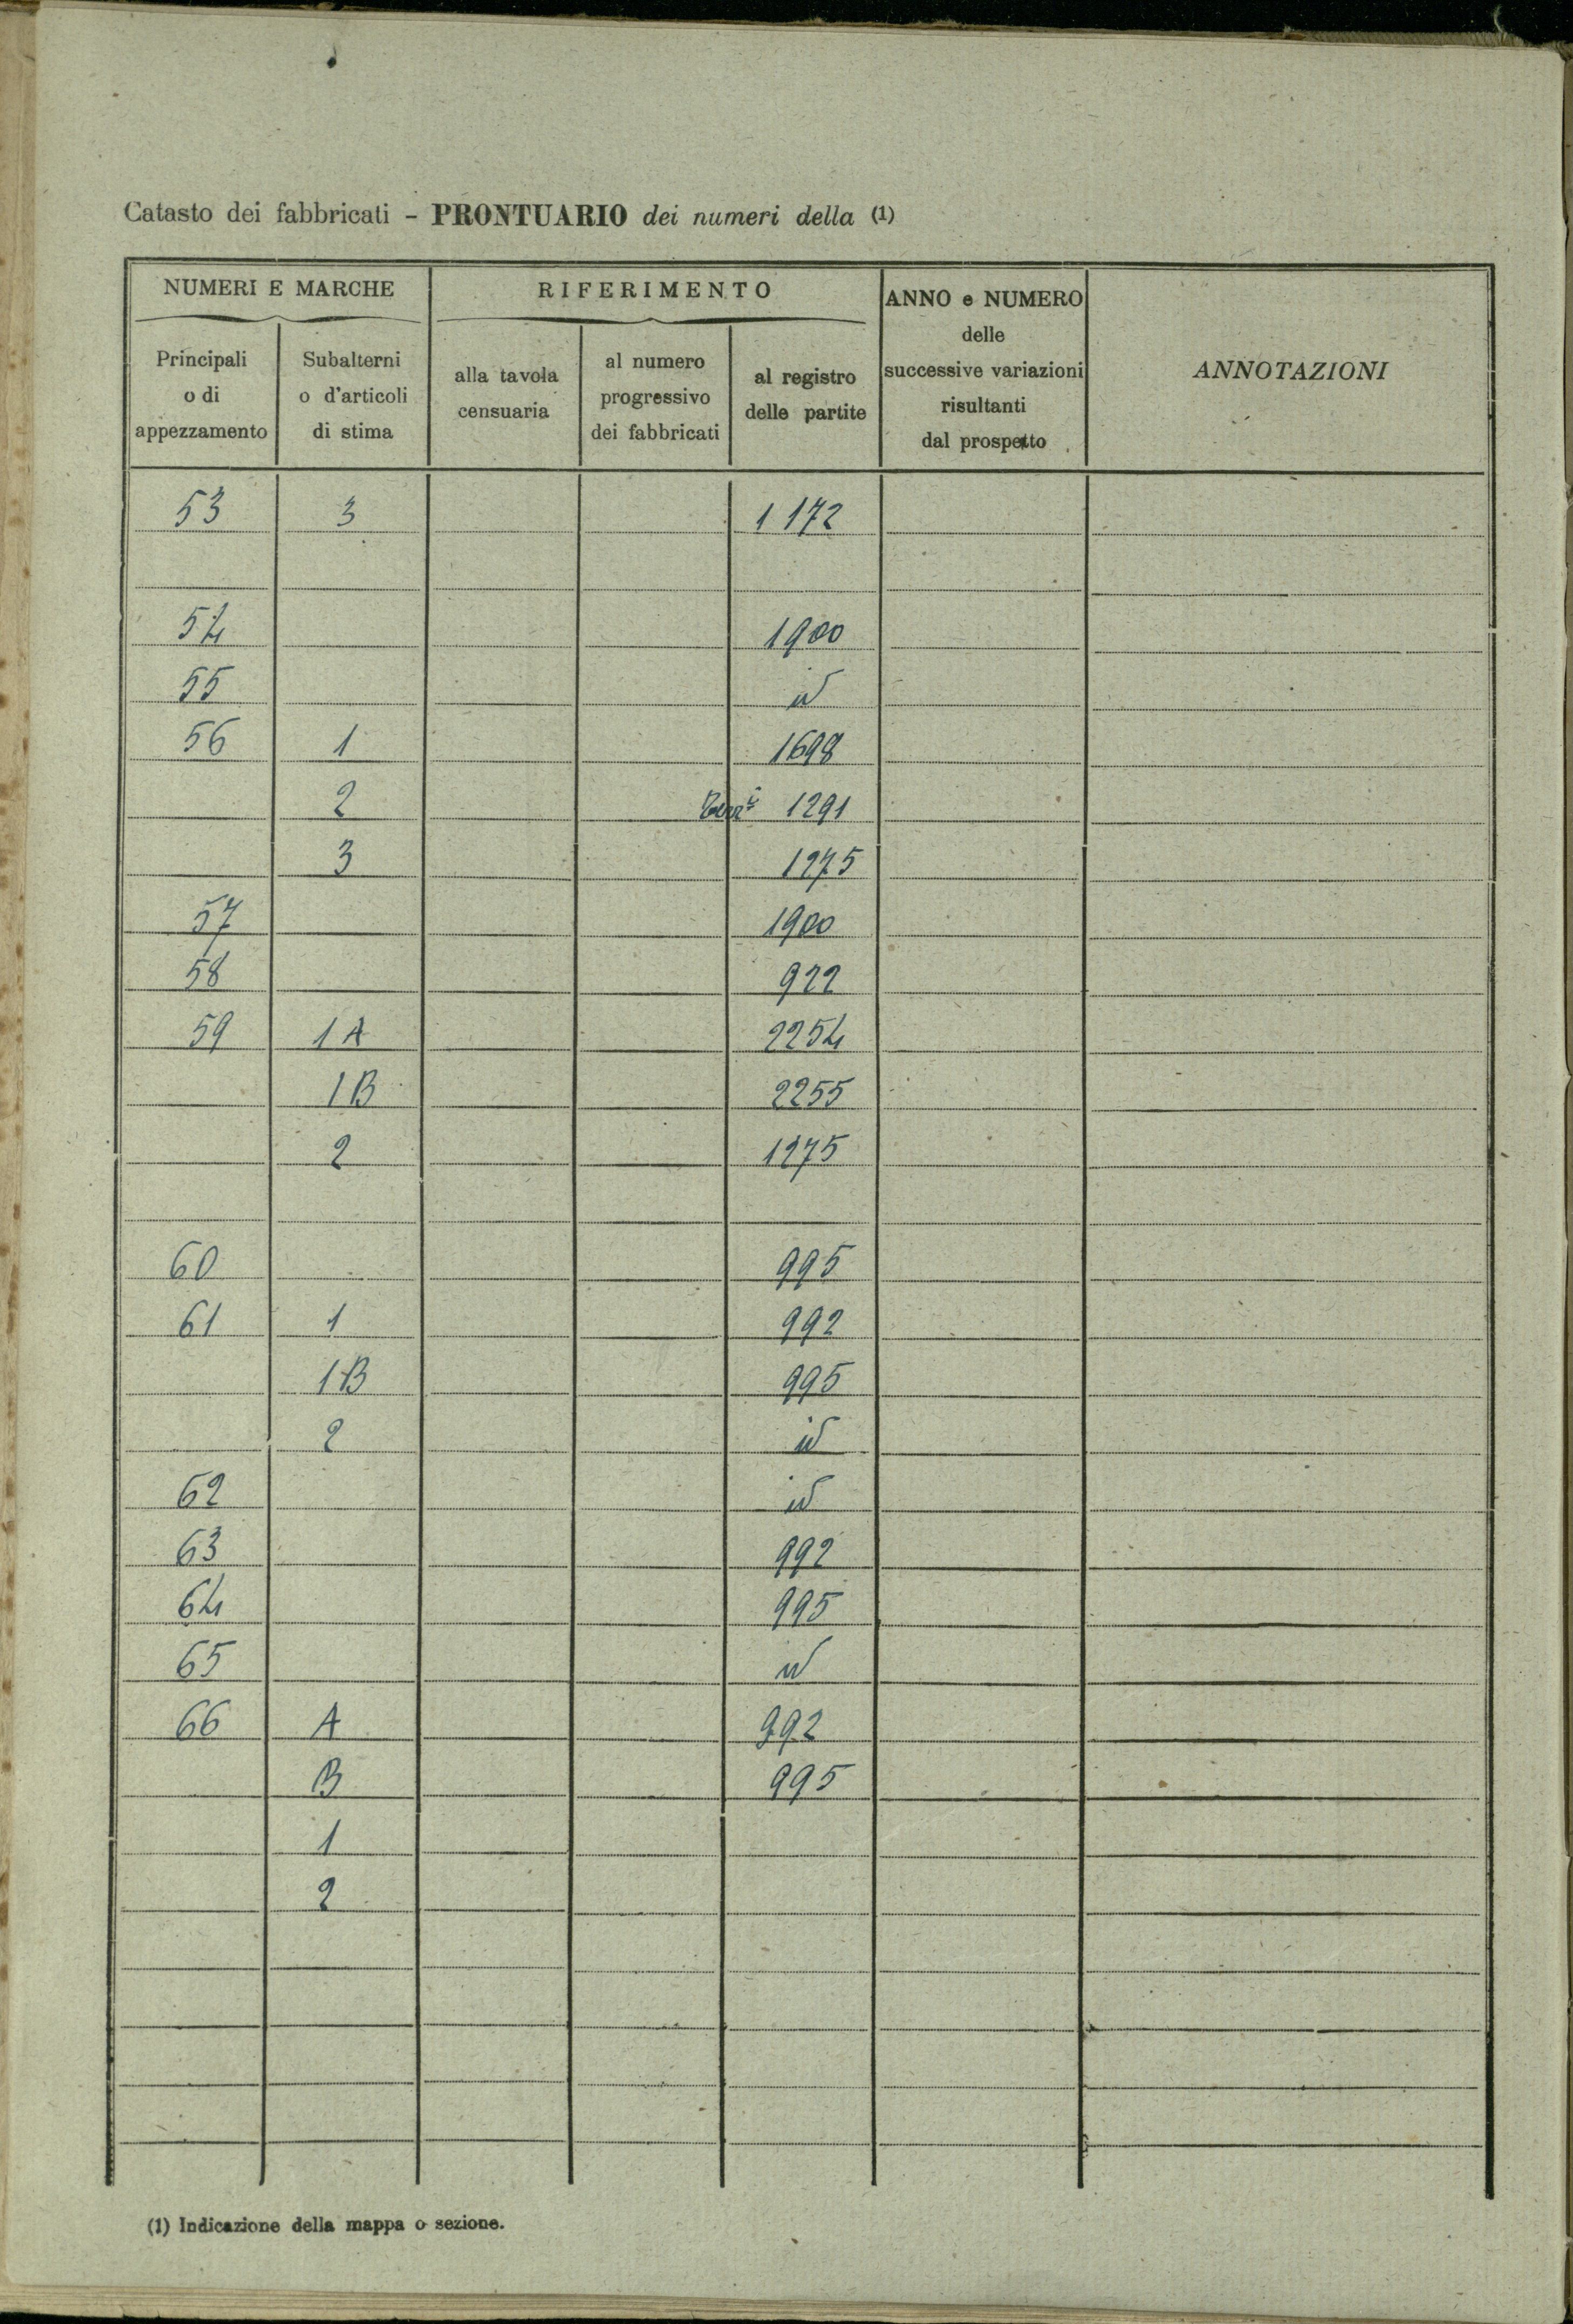 Catasto dei fabbricati - PRONTUARIO dei numeri della (1)
NUMERI E MARCHE
RIFERIMENTO
ANNO e NUMERO
delle
successive variazioni
risultanti
dal prospetto
ANNOTAZIONI
Principali
o di
appezzamento
Subalterni
o d'articoli
di stima
alla tavola
censuaria
al numero
progressivo
dei fabbricati
al registro
delle partite
53 3 1172
54 1900
55 id
56 1 1698
2 1291
3 1275
57 1900
58 922
59 1A 2254
1B 2255
2 1275
60 995
61 1 992
1B 995
2 id
62 id
63 992
64 995
65 id
66 A 992
B 995
1
2
(1) Indicazione della mappa o sezione.